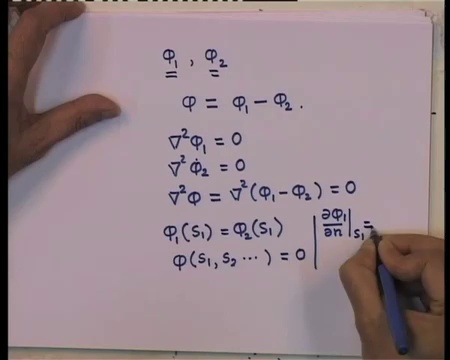 φ₁ , φ₂
φ = φ₁ − φ₂ .
∇²φ₁ = 0
∇²φ₂ = 0
∇²φ = ∇²(φ₁ − φ₂) = 0
φ₁(S₁) = φ₂(S₁) | ∂φ₁/∂n |S₁ =
φ(S₁, S₂ ⋯) = 0